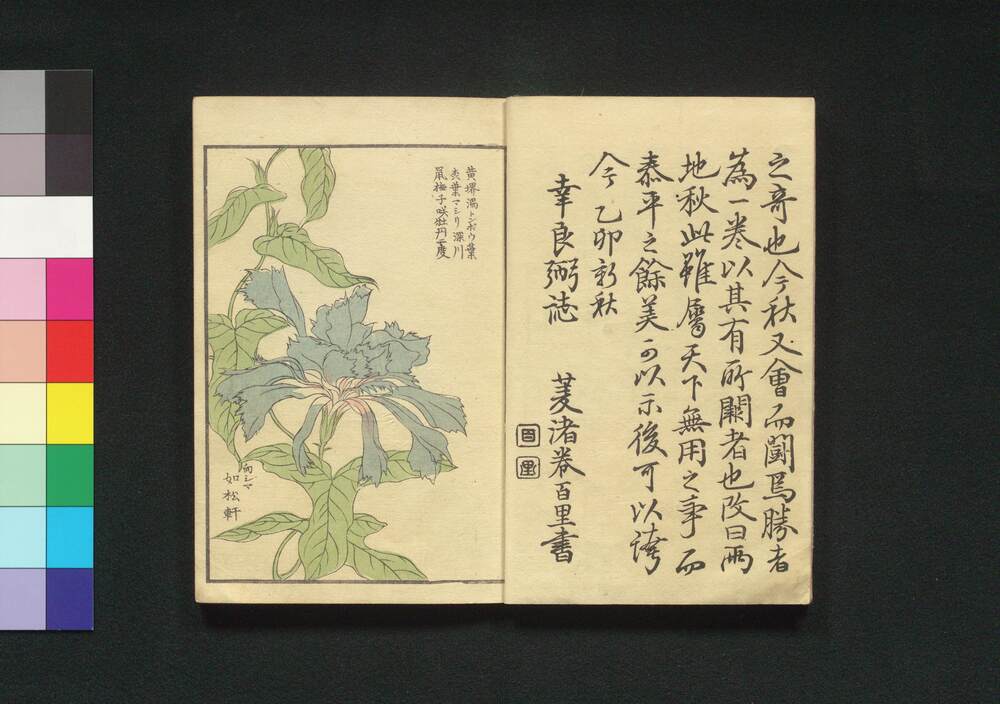 之奇也今秋又會而闘焉勝者
為一巻以其有所闕者也改曰両
地秋此雖属天下無用之事而
泰平之餘美可以示後可以誇
今乙卯新秋
幸良弼誌
菱渚巻百里書
百里
黄堺渦トンボウ葉
葉マシリ深川
鼠梅子咲牡丹度
両シマ
如松軒